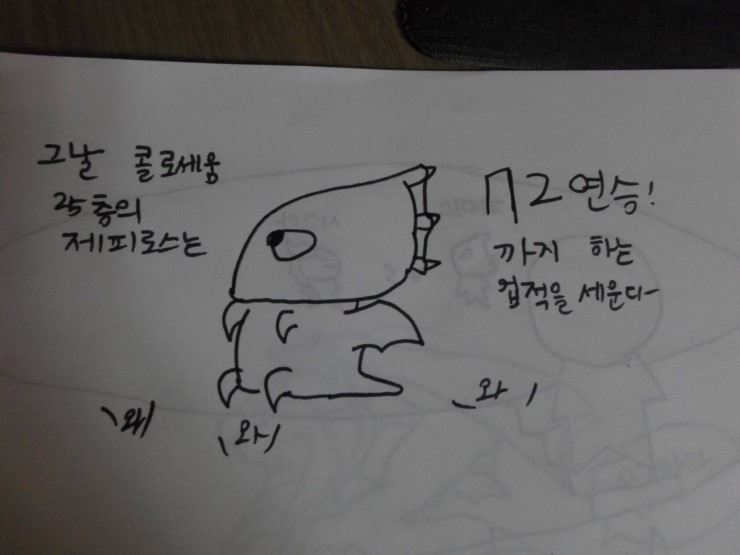 그날 콜로세움
25층의
제피로스는
72연승!
까지 하는
업적을 세운다-
、와/
、와/
、와/